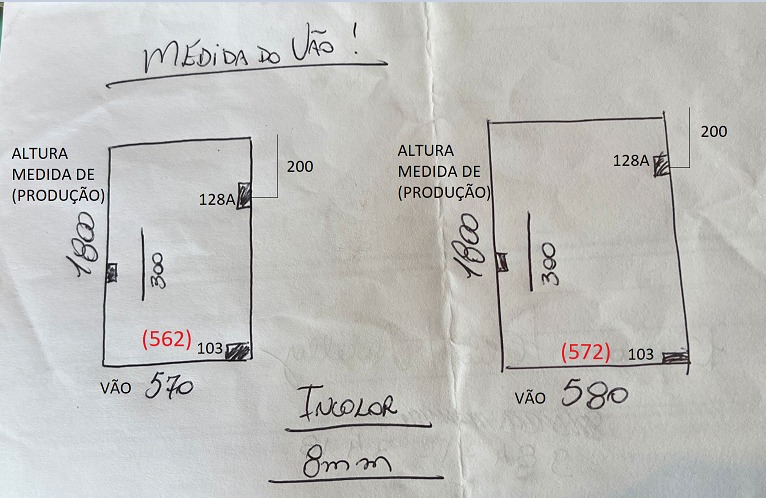 MEDIDA DO VÃO!
ALTURA
MEDIDA DE
(PRODUÇÃO)
200
128A
1800
300
(562)
103
VÃO 570
ALTURA
MEDIDA DE
(PRODUÇÃO)
200
128A
1800
300
(572)
103
VÃO 580
INCOLOR
8mm